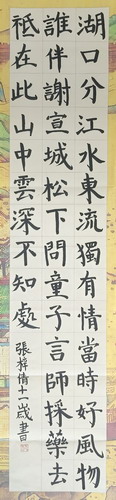 湖口分江水東流獨有情當時好風物
誰伴謝宣城松下問童子言師採藥去
祗在此山中雲深不知處
張梓倩十一歲書